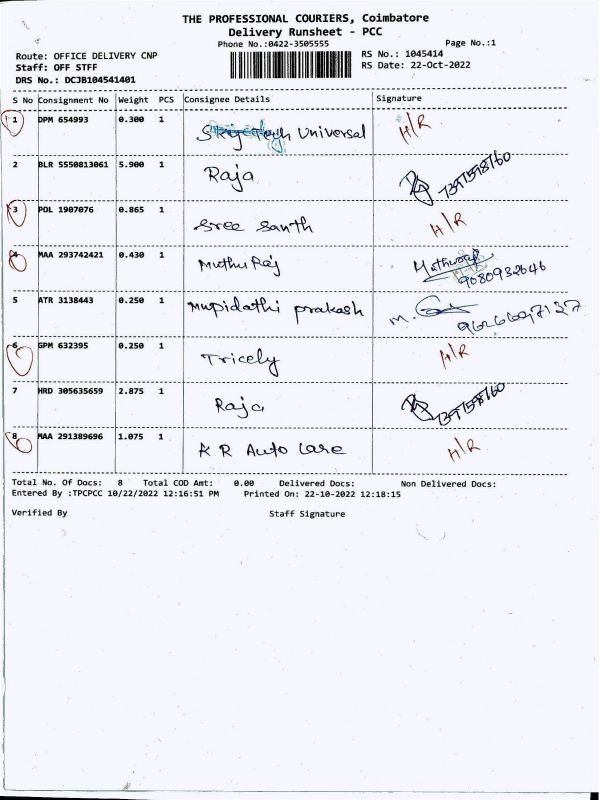 THE PROFESSIONAL COURIERS, Coimbatore
Delivery Runsheet - PCC
Phone No.:0422-3505555
Page No.:1
Route: OFFICE DELIVERY CNP
RS No.: 1045414
Staff: OFF STFF
RS Date: 22-Oct-2022
DRS No.: DCJB104541401
S No Consignment No Weight PCS Consignee Details Signature
1 DPM 654993 0.300 1 Universal H/R
2 BLR 5550813061 5.900 1 Raja
3 POL 1907076 0.865 1 Sree Santh H/R
4 MAA 293742421 0.430 1 Muthu Raj
9080932646
5 ATR 3138443 0.250 1 Mupidathi prakash M.
6 GPM 632395 0.250 1 Tricely H/R
7 HRD 305635659 2.875 1 Raja
8 MAA 291389696 1.075 1 K R Auto Care H/R
Total No. Of Docs: 8 Total COD Amt: 0.00 Delivered Docs: Non Delivered Docs:
Entered By :TPCPCC 10/22/2022 12:16:51 PM Printed On: 22-10-2022 12:18:15
Verified By Staff Signature